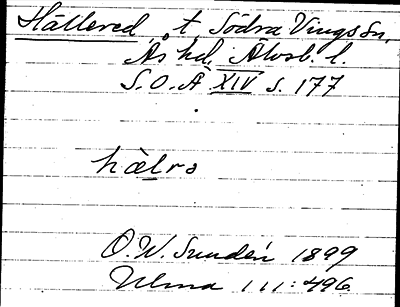 Hällered t. Södra Vings sn,
Ås hd, Älvsb. l.
S.O.Ä XIV s. 177
hàlrə
O.W. Sundén 1899
Ulma 111:496